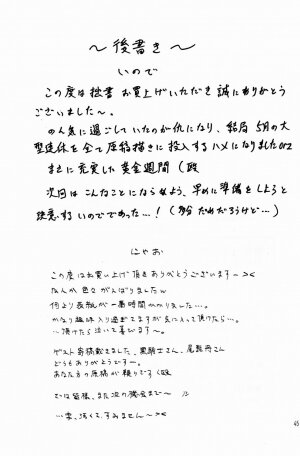 ～後書き～
いので
この度は拙書お買上げいただき誠にありがとう
ございました～。
のん気に過ごしていたのが仇になり、結局5月の大
型連休を全て原稿描きに投入するハメになりましたorz
まさに充実した黄金週間(殴
次回はこんなことにならぬよう、早めに準備をしようと
決意するいのでであった…!(多分だめだろうけど…)
にゃお
この度はお買い上げ頂きありがとうございます～><
なんか色々がんばりましたw
何より表紙が一番時間かかりました…。
かなり趣味入り過ぎてますが気に入って頂けたら…
～頂けたら泣いて喜びます～。
ゲスト寄稿戴きました、黒騎士さん、尾
どうもありがとうです～。
あなた方の原稿が頼りです(殴
では皆様、また次の機会まで～
字、汚くて、すみません～><
45